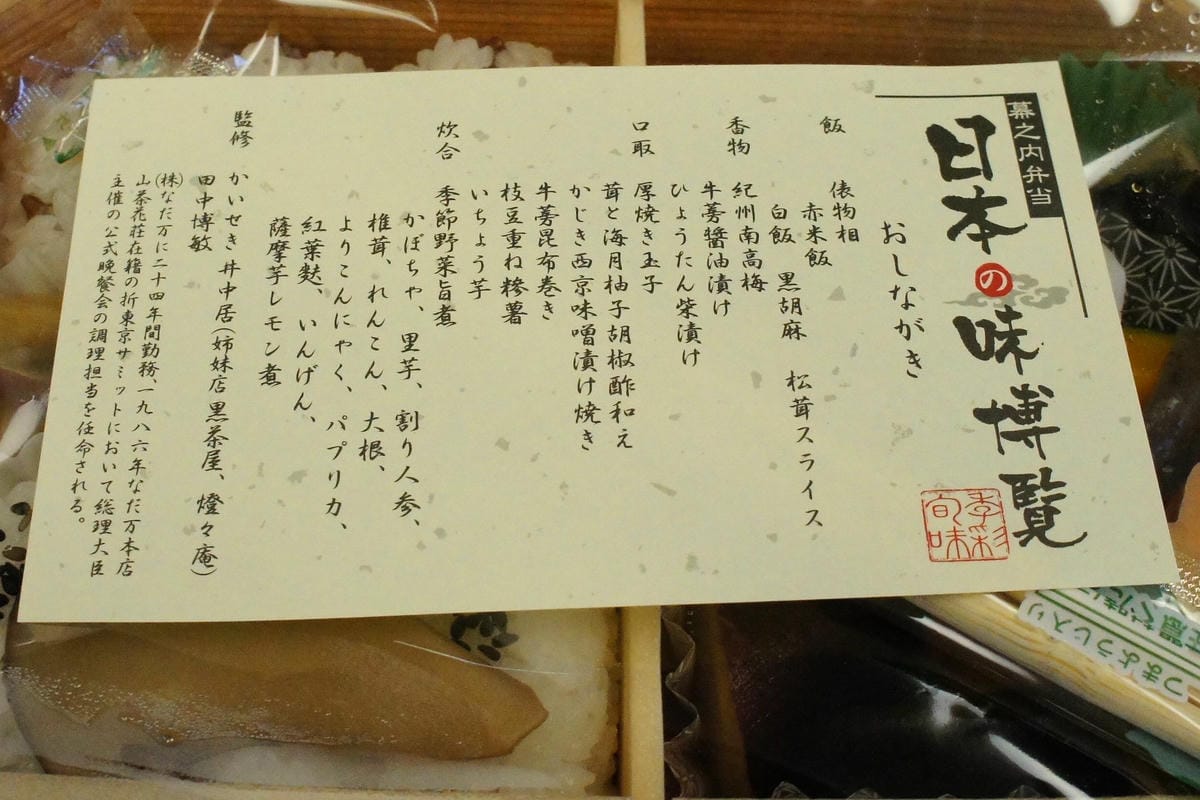 幕之内弁当
日本の味博覧
季彩旬味
おしながき
飯
俵物相
赤米飯
白飯 黒胡麻 松茸スライス
香物
紀州南高梅
牛蒡醤油漬け
ひょうたん柴漬け
口取
厚焼き玉子
茸と海月柚子胡椒酢和え
かじき西京味噌漬け焼き
牛蒡昆布巻き
枝豆重ね糝薯
いちょう芋
炊合
季節野菜旨煮
かぼちゃ、里芋、割り人参、
椎茸、れんこん、大根、
よりこんにゃく、パプリカ、
紅葉麩、いんげん、
薩摩芋レモン煮
監修
かいせき 井中居(姉妹店 黒茶屋、燈々庵)
田中博敏
(株)なだ万に二十四年間勤務、一九八六年なだ万本店
山茶花荘在籍の折東京サミットにおいて総理大臣
主催の公式晩餐会の調理担当を任命される。
つまようじ入り